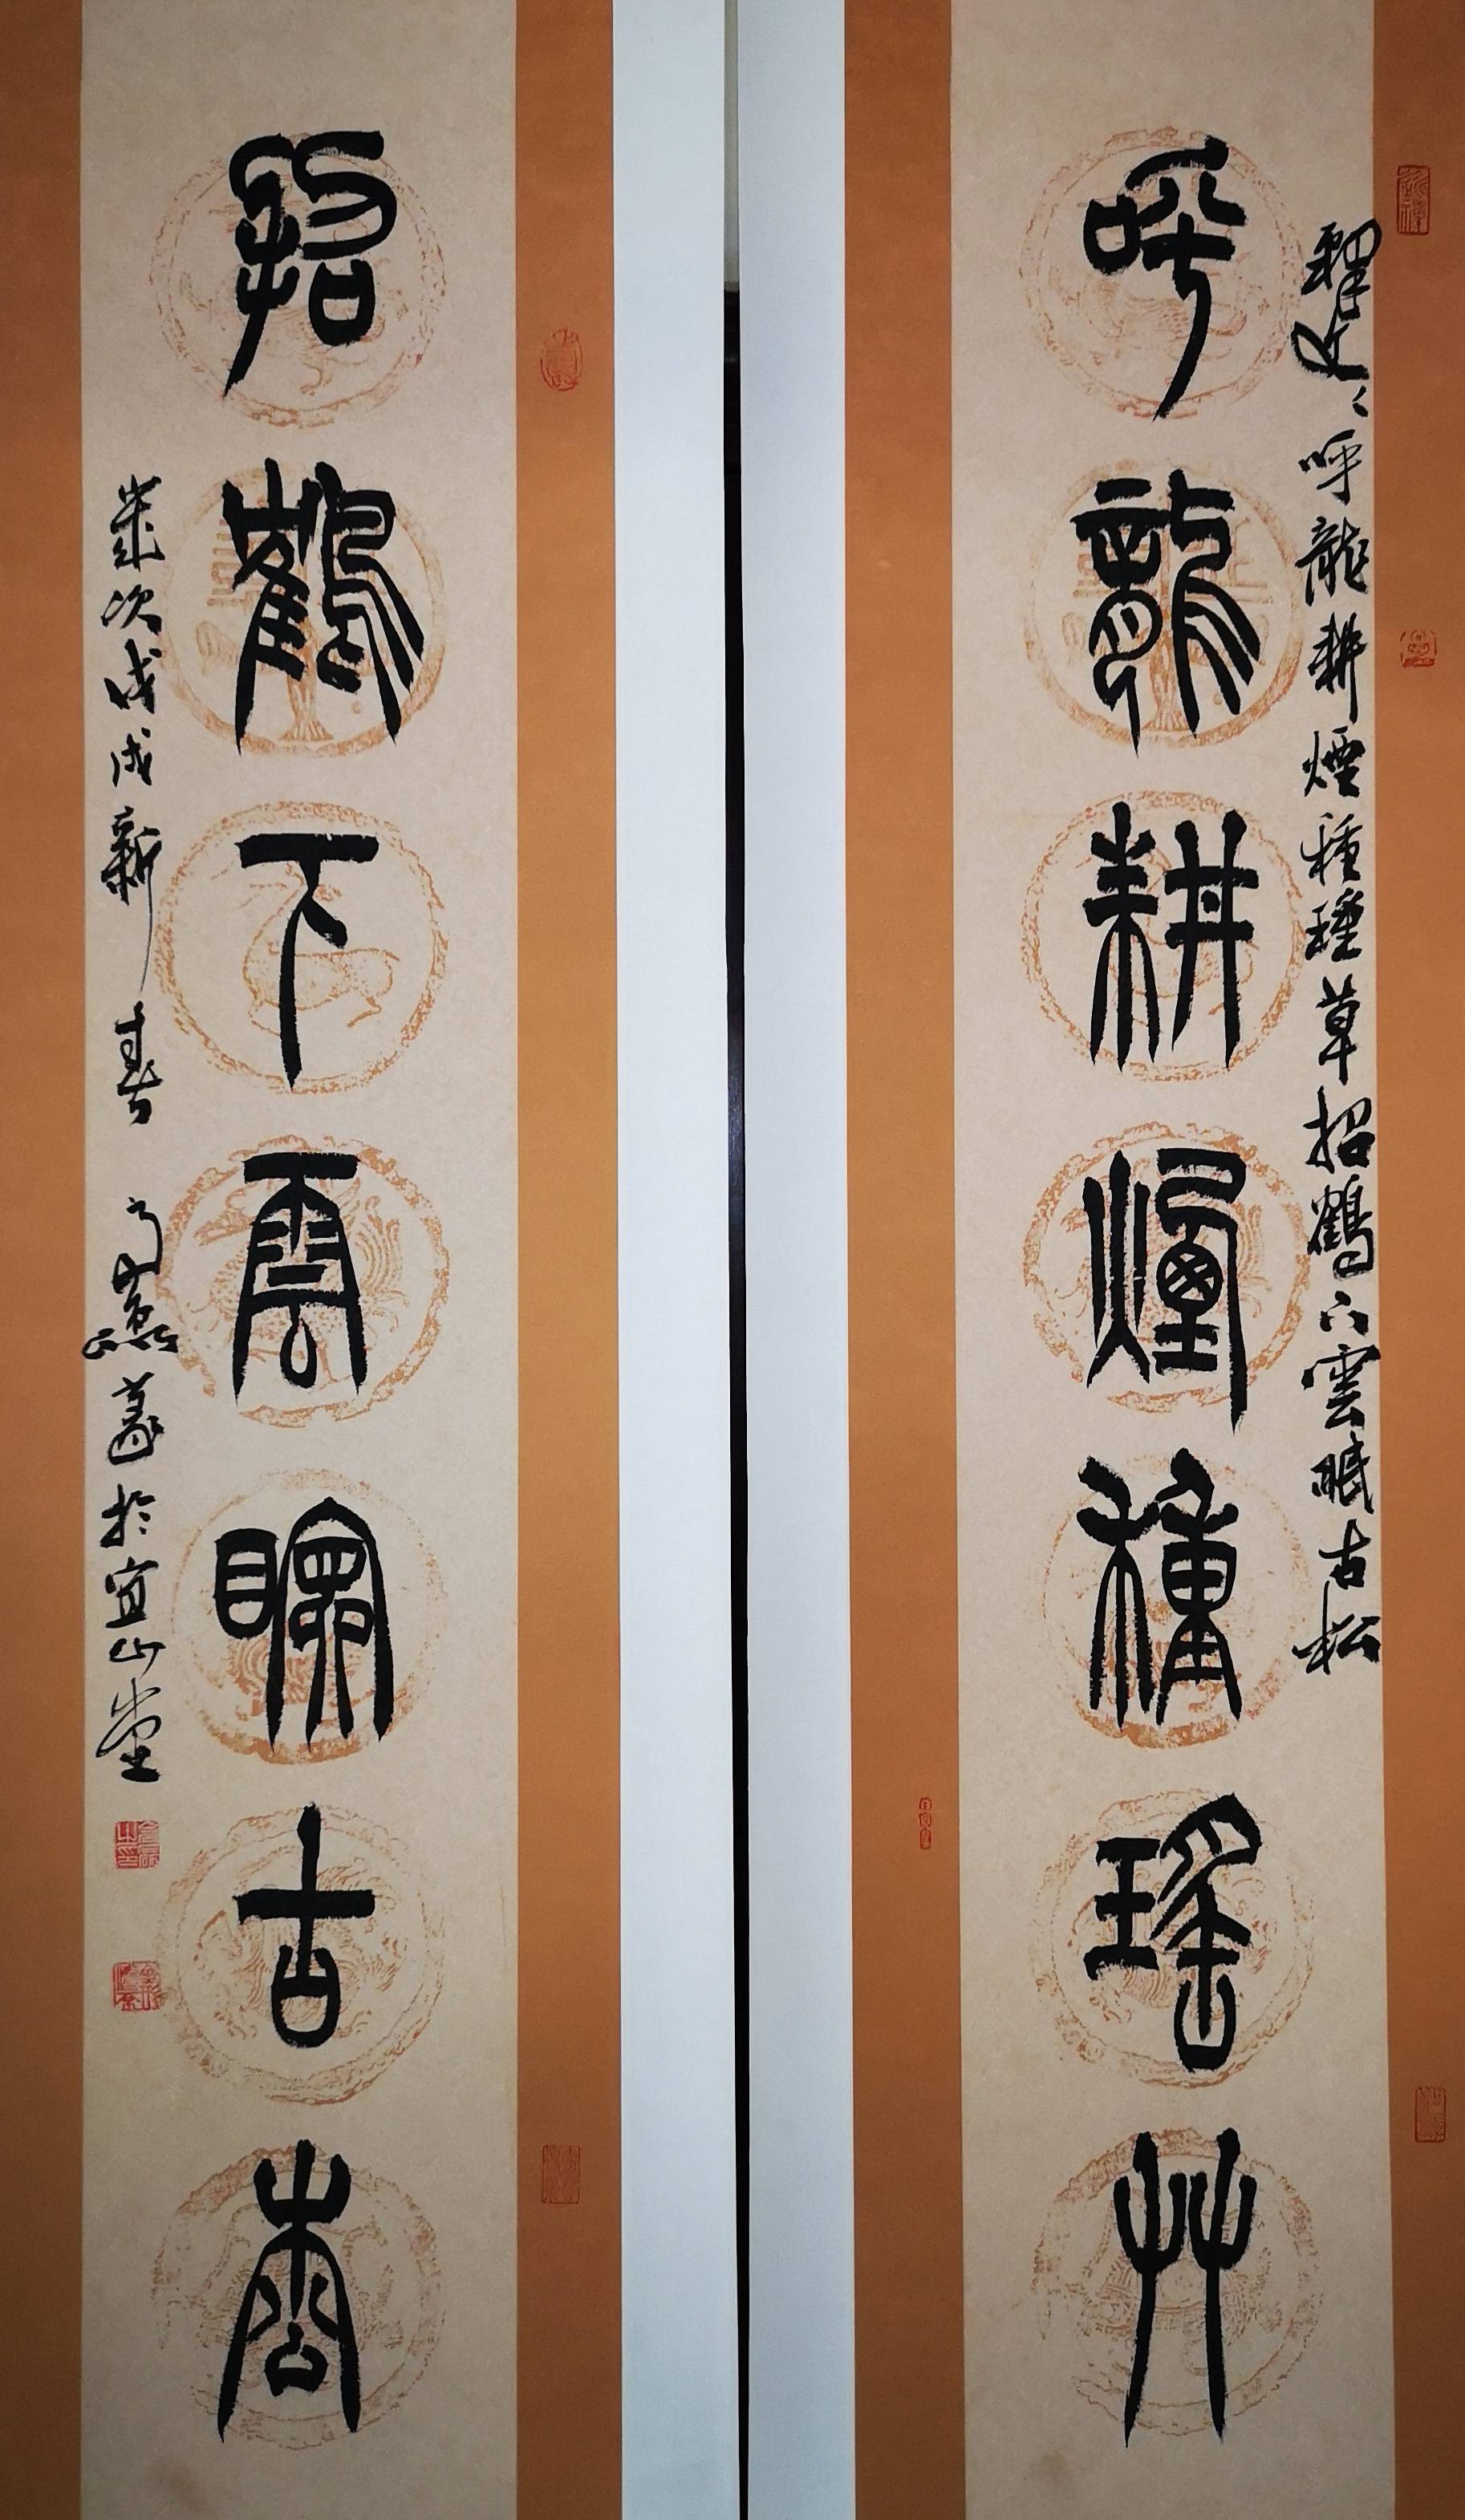 釋文：呼龍耕煙種瑤草招鶴下雲眠古松
呼龍耕煙種瑤艸
招鶴下雲眠古松
歲次戊戌新春於宜山堂